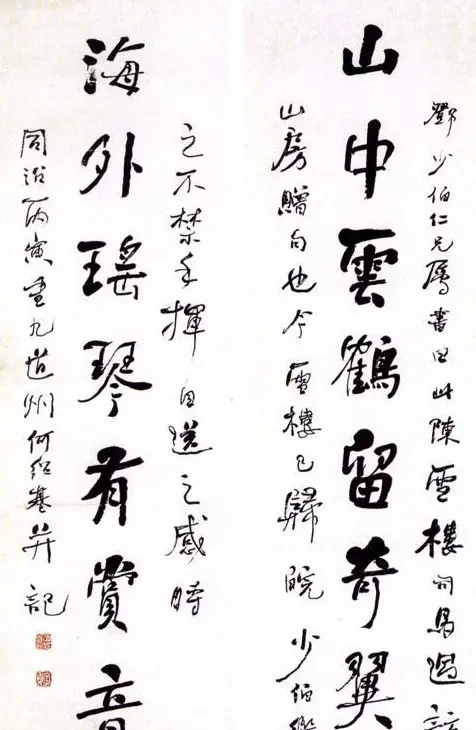 鄧少伯仁兄屬書曰此陳雪樓司馬過訪
山中雲鶴留奇翼
山房贈句也今雪樓已歸皖少伯
之不禁手揮目送之感時
海外瑤琴有賞音
同治丙寅重九道州何紹基并記